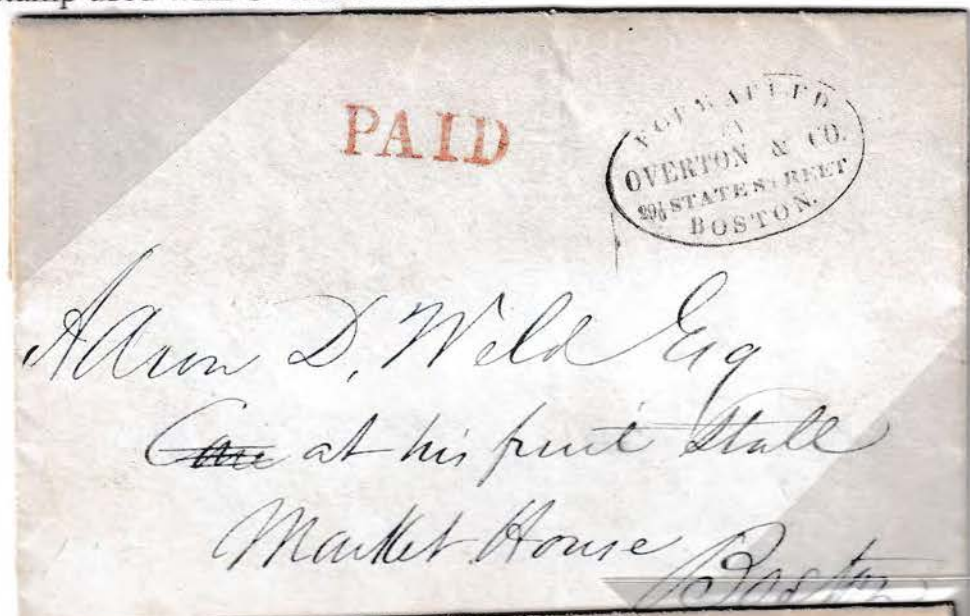 PAID
FORWARDED
OVERTON & CO.
STATE STREET
BOSTON.
Aaron D. Weld Esq
at his fruit Stall
Market House
Boston